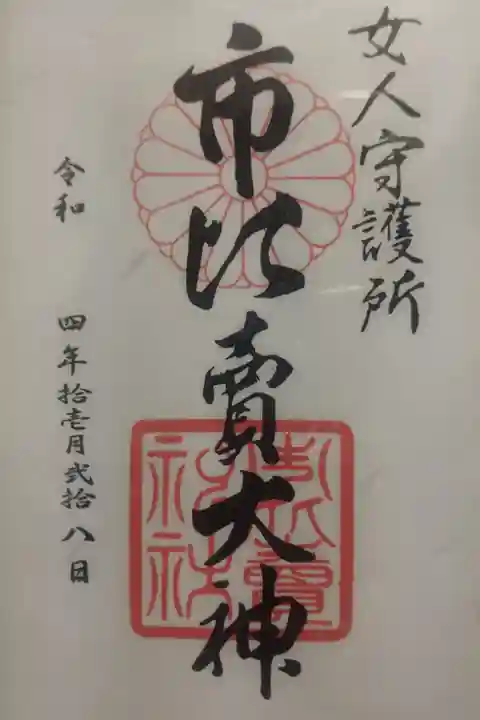 女人守護所
市比賣大神
令和四年拾壱月弐拾八日
市比賣神社